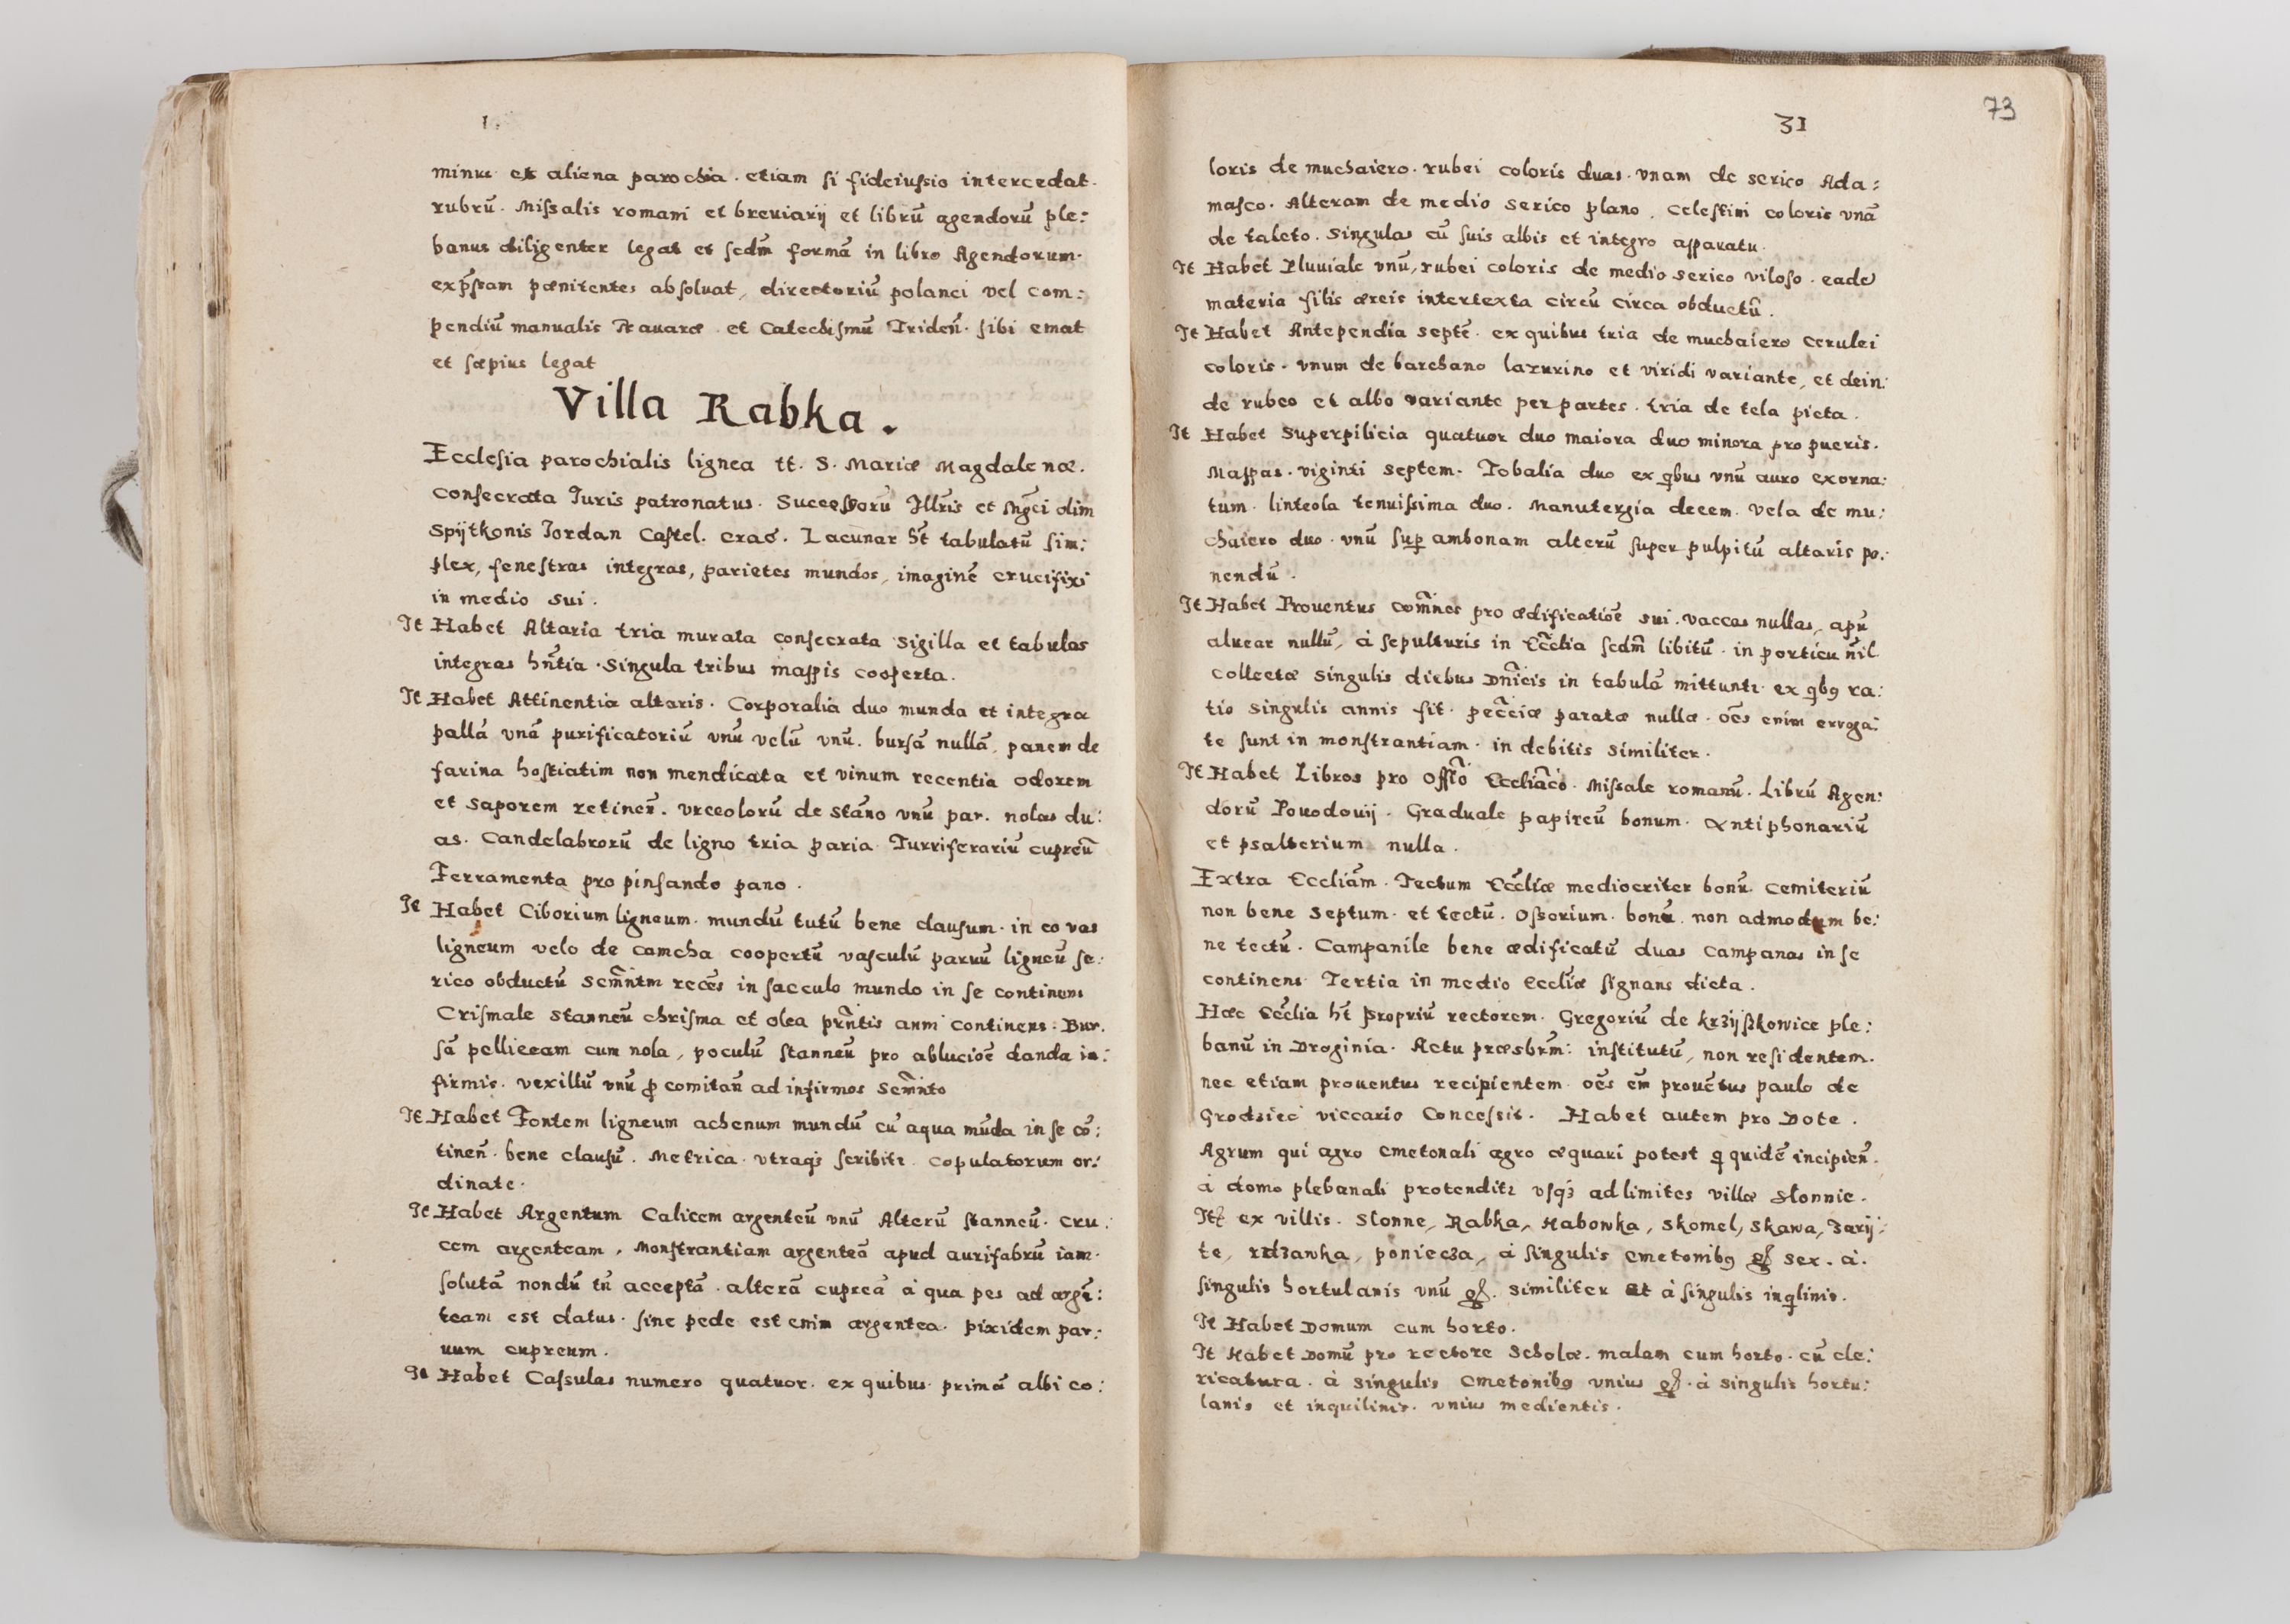 1.
minus ex aliena parochia. etiam ſi fideiuſsio intercedat.
rubrū. Miſsalis romani et breuiarij et librū agendorū ple:
banus diligenter legat et ſcdm̄ formā in libro Agendorum.
exp̄ſsam pœnitentes abſoluat, directoriū polanci vel com:
pendiū manualis Nauaræ. et Catechiſmū Triden̄. ſibi emat
et ſæpius legat
Villa Rabka.
Eccleſia parochialis lignea tt. S. Mariæ Magdalenæ.
Conſecrata Juris patronatus. Succeſsorū Jllr̄is et Mgc̄i olim
Spijtkonis Jordan Caſtel. Crac̄. Lacunar h̄t tabulatū ſim:
plex, feneſtras integras, parietes mundos, imaginē crucifixi
in medio sui.
Jt Habet Altaria tria murata conſecrata Sigilla et tabulas
integras hn̄tia. Singula tribus mappis cooperta.
Jt Habet Attinentia altaris. Corporalia duo munda et integra
pallā vnā purificatoriū vnū velū vnū. burſā nullā, panem de
farina hoſtiatim non mendicata et vinum recentia odorem
et saporem retinen̄. vrceolorū de stāno vnū par. nolas du:
as. Candelabrorū de ligno tria paria Turriferariū cupreū
Ferramenta pro pinſando pano.
Jt Habet Ciborium ligneum. mundū tutū bene clauſum. in eo vas
ligneum velo de camcha coopertū vaſculū paruū ligneū ſe:
rico obductū Sem̄ntm recēs in ſacculo mundo in ſe continens
Criſmale stanneū chriſma et olea pr̄ntis anni continens: Bur.
ſā pelliceam cum nola, poculū ſtanneū pro abluciōē danda in:
firmis. vexillū vnū ꝓ comitan̄ ad infirmos Sem̄nto
Jt Habet Fontem ligneum achenum mundū cū aqua mūda in ſe cō:
tinen̄. bene clauſū. Metrica. vtraqꝫ ſcribitr. copulatorum or:
dinate.
Jt Habet Argentum Calicem argenteū vnū Alterū ſtanneū. Cru:
cem argenteam, Monſtrantiam argenteā apud aurifabrū iam.
ſolutā nondū tn̄ acceptā. alterā cupreā à qua pes ad argē:
team est datus. ſine pede est enim argentea. pixidem par:
uum cupreum.
Jt Habet Caſsulas numero quatuor. ex quibus. primā albi co:
73
31
loris de muchaiero. rubei coloris duas. vnam de serico Ada:
maſco. Alteram de medio serico plano. Celeſtini coloris vnā
de taleto. Singulas cū ſuis albis et integro apparatu.
Jt Habet Pluuiale vnū, rubei coloris de medio serico viloſo. eadē
materia filis æreis intertexta circū circa obductū.
Jt Habet Antependia septē. ex quibus tria de muchaiero cerulei
coloris. vnum de barchano lazurino et viridi variante, et dein:
de rubeo et albo variante per partes. tria de tela picta.
Jt Habet Superpilicia quatuor duo maiora duo minora pro pueris.
Mappas. viginti septem. Tobalia duo ex qbus vnū auro exorna:
tum. linteola tenuiſsima duo. Manutergia decem. vela de mu:
chaiero duo. vnū ſuꝑ ambonam alterū ſuper pulpitū altaris po:
nendū.
Jt Habet Prouentus com̄nes pro ædificatiōē sui. vaccas nullas, apū
aluear nullū, à ſepulturis in Ecc̄lia ſcdm̄ libitū. in porticu nīl
Collectæ singulis diebus Dn̄icis in tabulā mittuntr. ex qbꝯ ra:
tio singulis annis fit. pecc̄iæ paratæ nullæ. oēs enim erroga:
te ſunt in monſtrantiam. in debitis similiter.
Jt Habet Libros pro offīo Eccliac̄o. Miſsale romanū. Librū Agen:
dorū Pouodouij. Graduale papireū bonum. Antiphonariū
et psalterium nulla.
Extra Eccliām. Tectum Eccliæ mediocriter bonū. Cemiteriū
non bene septum. et tectū. Oſsorium. bonū. non admodum be:
ne tectū. Campanile bene ædificatū duas campanas in ſe
continens Tertia in medio Eccliæ ſignans dicta.
Hæc Ecc̄lia h̄t propriū rectorem. Gregoriū de krzijſzkowice ple:
banū in Droginia. Actu præsbr̄m: inſtitutū, non reſidentem.
nec etiam prouentus recipientem. oēs em̄ prouētus paulo de
Grodziec viccario Conceſsit. Habet autem pro Dote.
Agrum qui agro cmetonali agro æquari potest q quidē incipien̄.
à domo plebanali protenditr vſqꝫ ad limites villæ Slonnie.
Jt ex villis. Slonne, Rabka, Habowka, Skomel, Skawa, Zarij:
te, rdzawka, poniecza, à ſingulis cmetonibꝯ gſ sex. à.
ſingulis hortulanis vnū gſ. similiter et à ſingulis inqlinis.
Jt Habet Domum cum horto.
Jt Habet Domū pro rectore Scholæ. malam cum horto. cū cle:
ricatura. à singulis cmetonibꝯ vnius gſ. à singulis hortu:
lanis et inquilinis. vnius medientis.